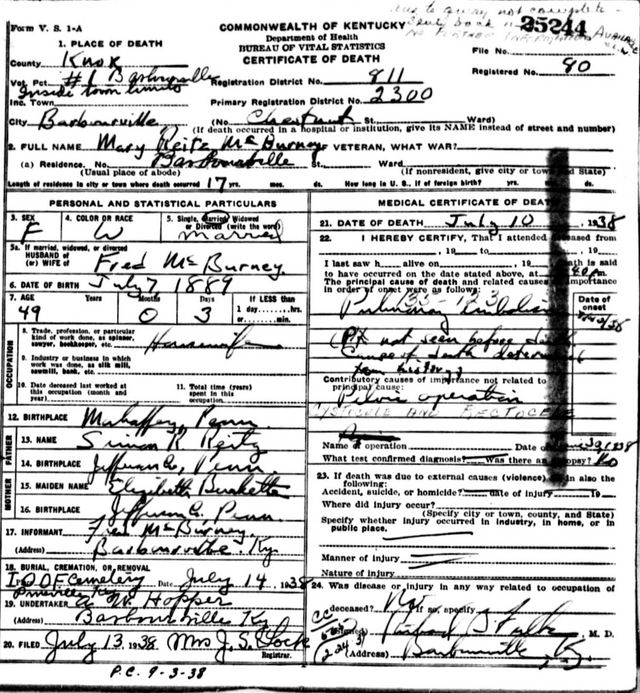 Form V. S. 1-A
COMMONWEALTH OF KENTUCKY
Department of Health
BUREAU OF VITAL STATISTICS
CERTIFICATE OF DEATH
25244
File No.
Registered No. 80
1. PLACE OF DEATH
County Knox
Vot. Pct. #1 Barbourville
Inside town limits
Inc. Town
Registration District No. 811
Primary Registration District No. 2300
City Barbourville (No. Chestnut St. Ward)
(If death occurred in a hospital or institution, give its NAME instead of street and number)
2. FULL NAME Mary Reitz McBurney IF VETERAN, WHAT WAR?
(a) Residence. No. Barbourville St. Ward
(Usual place of abode) (If nonresident, give city or town and State)
Length of residence in city or town where death occurred 17 yrs. mos. ds. How long in U. S., if of foreign birth? yrs. mos. ds.
PERSONAL AND STATISTICAL PARTICULARS
3. SEX F
4. COLOR OR RACE W
5. Single, Married, Widowed or Divorced (write the word) Married
5a. If married, widowed, or divorced
HUSBAND of
(or) WIFE of Fred McBurney
6. DATE OF BIRTH July 7 1889
7. AGE Years Months Days If LESS than
49 0 3 1 day,....hrs.
or....min.
OCCUPATION
8. Trade, profession, or particular kind of work done, as spinner, sawyer, bookkeeper, etc. Housewife
9. Industry or business in which work was done, as silk mill, sawmill, bank, etc.
10. Date deceased last worked at this occupation (month and year)
11. Total time (years) spent in this occupation
12. BIRTHPLACE Mahaffey, Penn.
FATHER
13. NAME Simon R Reitz
14. BIRTHPLACE Jefferson Co, Penn.
MOTHER
15. MAIDEN NAME Elizabeth
16. BIRTHPLACE Jefferson Co Penn.
17. INFORMANT Fred McBurney
(Address) Barbourville, Ky
18. BURIAL, CREMATION, OR REMOVAL
IOOF Cemetery Date July 14, 1938
Pineville Ky
19. UNDERTAKER Hopper
(Address) Barbourville Ky
20. FILED July 13, 1938 Mrs J. S. Registrar.
P.C. 9-3-38
MEDICAL CERTIFICATE OF DEATH
21. DATE OF DEATH July 10 1938
22. I HEREBY CERTIFY, That I attended deceased from
, 19 , to , 19
I last saw h alive on , 19 , death is said
to have occurred on the date stated above, at
The principal cause of death and related causes of importance
in order of onset were as follows:
Date of onset
Pulmonary Embolism
(Pt not seen before death
Cause of death determined
from history)
Contributory causes of importance not related to
principal cause:
Pelvic operation
CYSTOCELE AND RECTOCELE
Name of operation Date of 1938
What test confirmed diagnosis? Was there an autopsy? No
23. If death was due to external causes (violence) fill in also the
following:
Accident, suicide, or homicide? Date of injury 19
Where did injury occur?
(Specify city or town, county, and State)
Specify whether injury occurred in industry, in home, or in
public place.
Manner of injury
Nature of injury
24. Was disease or injury in any way related to occupation of
deceased? No If so, specify
(Signed) M. D.
(Address) Barbourville, Ky.